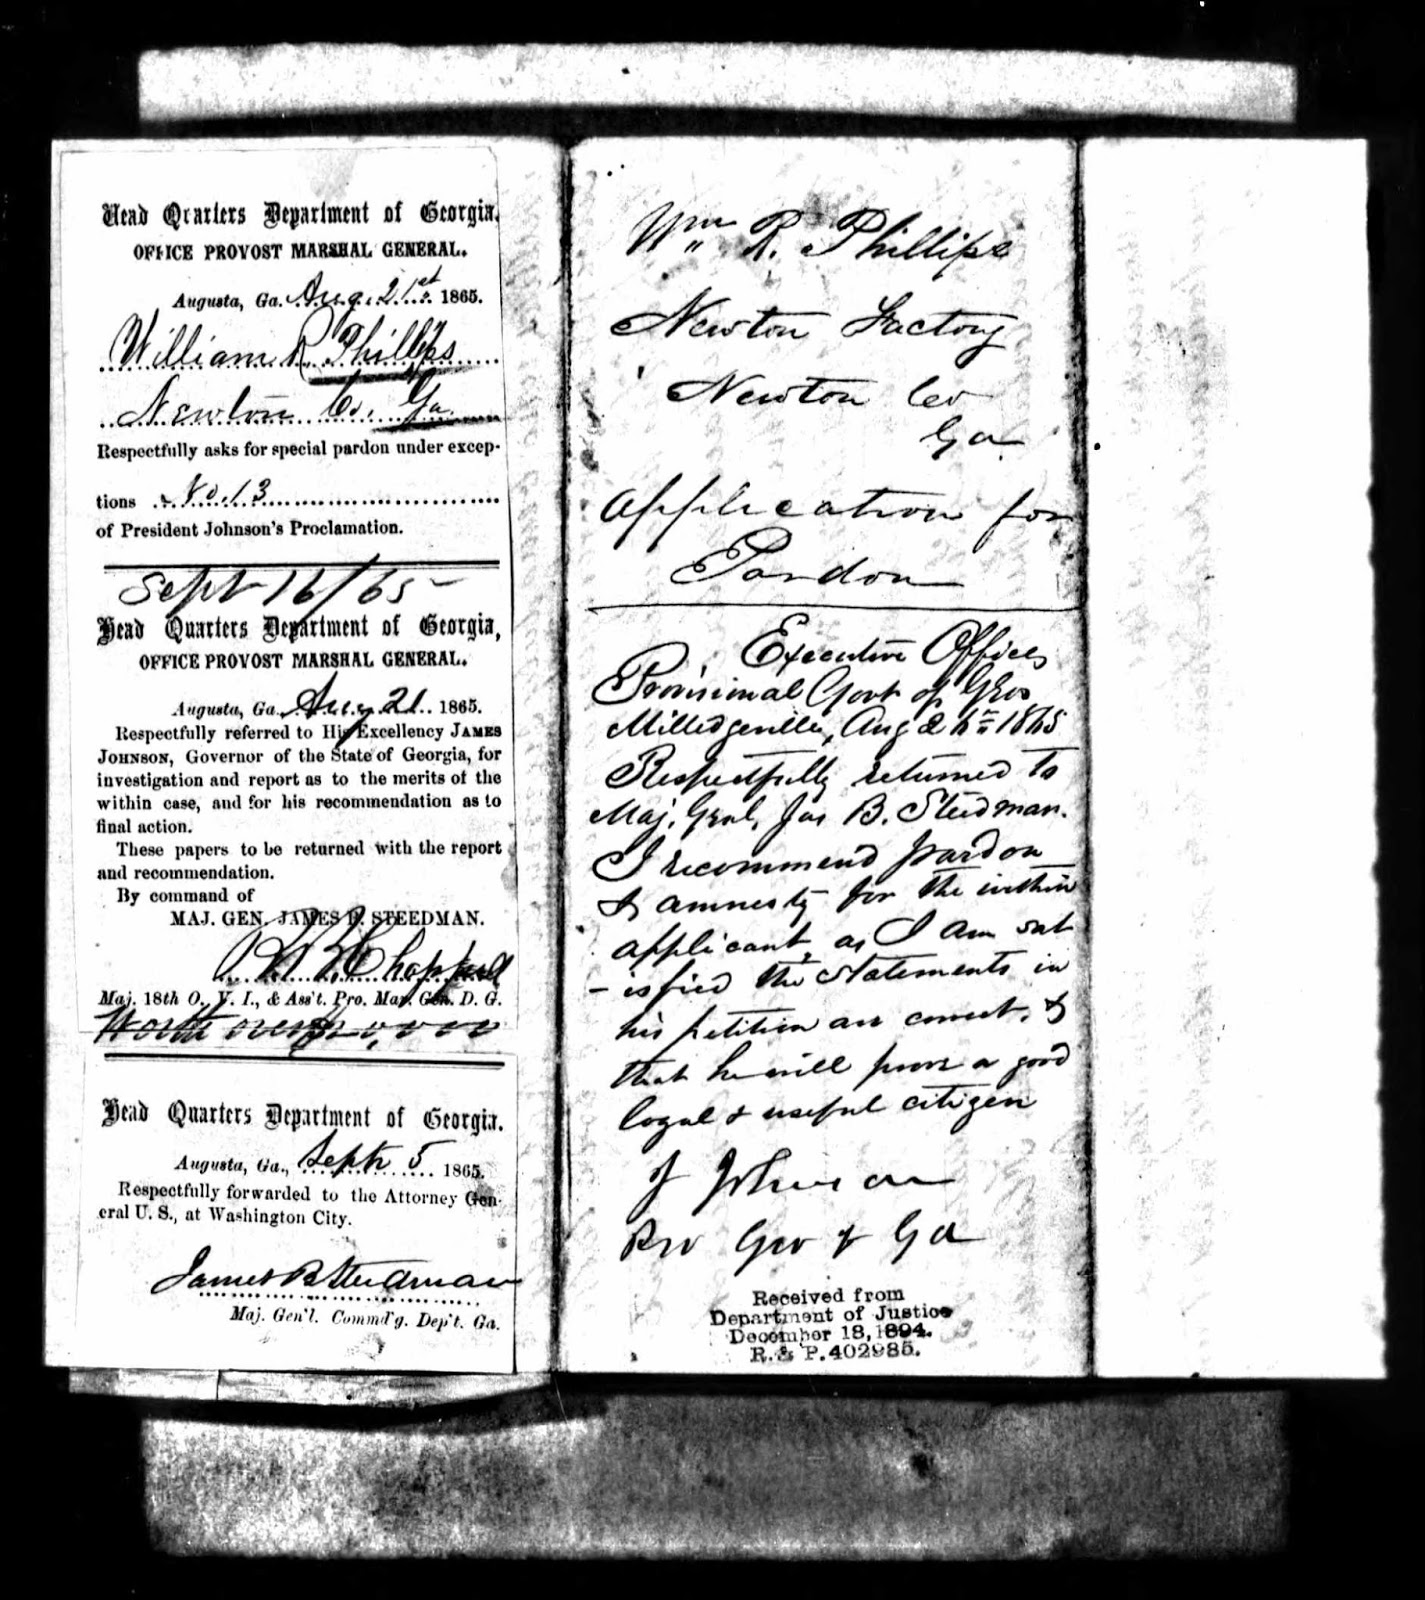 Head Quarters Department of Georgia.
OFFICE PROVOST MARSHAL GENERAL.
Augusta, Ga. Aug. 21st 1865.
William R. Phillips
Newton Co. Ga.
Respectfully asks for special pardon under excep-
tions No. 13
of President Johnson's Proclamation.
Sept 16/65
Head Quarters Department of Georgia,
OFFICE PROVOST MARSHAL GENERAL.
Augusta, Ga. Aug 21 1865.
Respectfully referred to His Excellency JAMES
JOHNSON, Governor of the State of Georgia, for
investigation and report as to the merits of the
within case, and for his recommendation as to
final action.
These papers to be returned with the report
and recommendation.
By command of
MAJ. GEN. JAMES B. STEEDMAN.
Chappell
Maj. 18th O. V. I., & Ass't. Pro. Mar. Gen. D. G.
Worth over $20,000
Head Quarters Department of Georgia.
Augusta, Ga., Septr 5 1865.
Respectfully forwarded to the Attorney Gen-
eral U. S., at Washington City.
James B Steedman
Maj. Gen'l. Commd'g. Dep't. Ga.
Wm R. Phillips
Newton Factory
Newton Co
Ga
Application for
Pardon
Executive Offices
Provisional Govt of Geo
Milledgeville, Aug 26th 1865
Respectfully returned to
Maj. Genl. Jas B. Steedman.
I recommend pardon
& amnesty for the within
applicant, as I am sat
-isfied the statements in
his petition are correct, &
that he will prove a good
loyal & useful citizen
J Johnson
Prv Gov of Ga
Received from
Department of Justice
December 18, 1894.
R. & P. 402985.